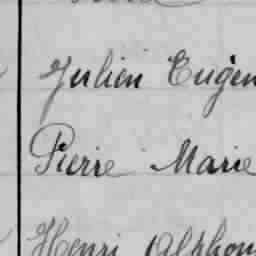 Julien Eugèn
Pierre Marie
Henri Alphon